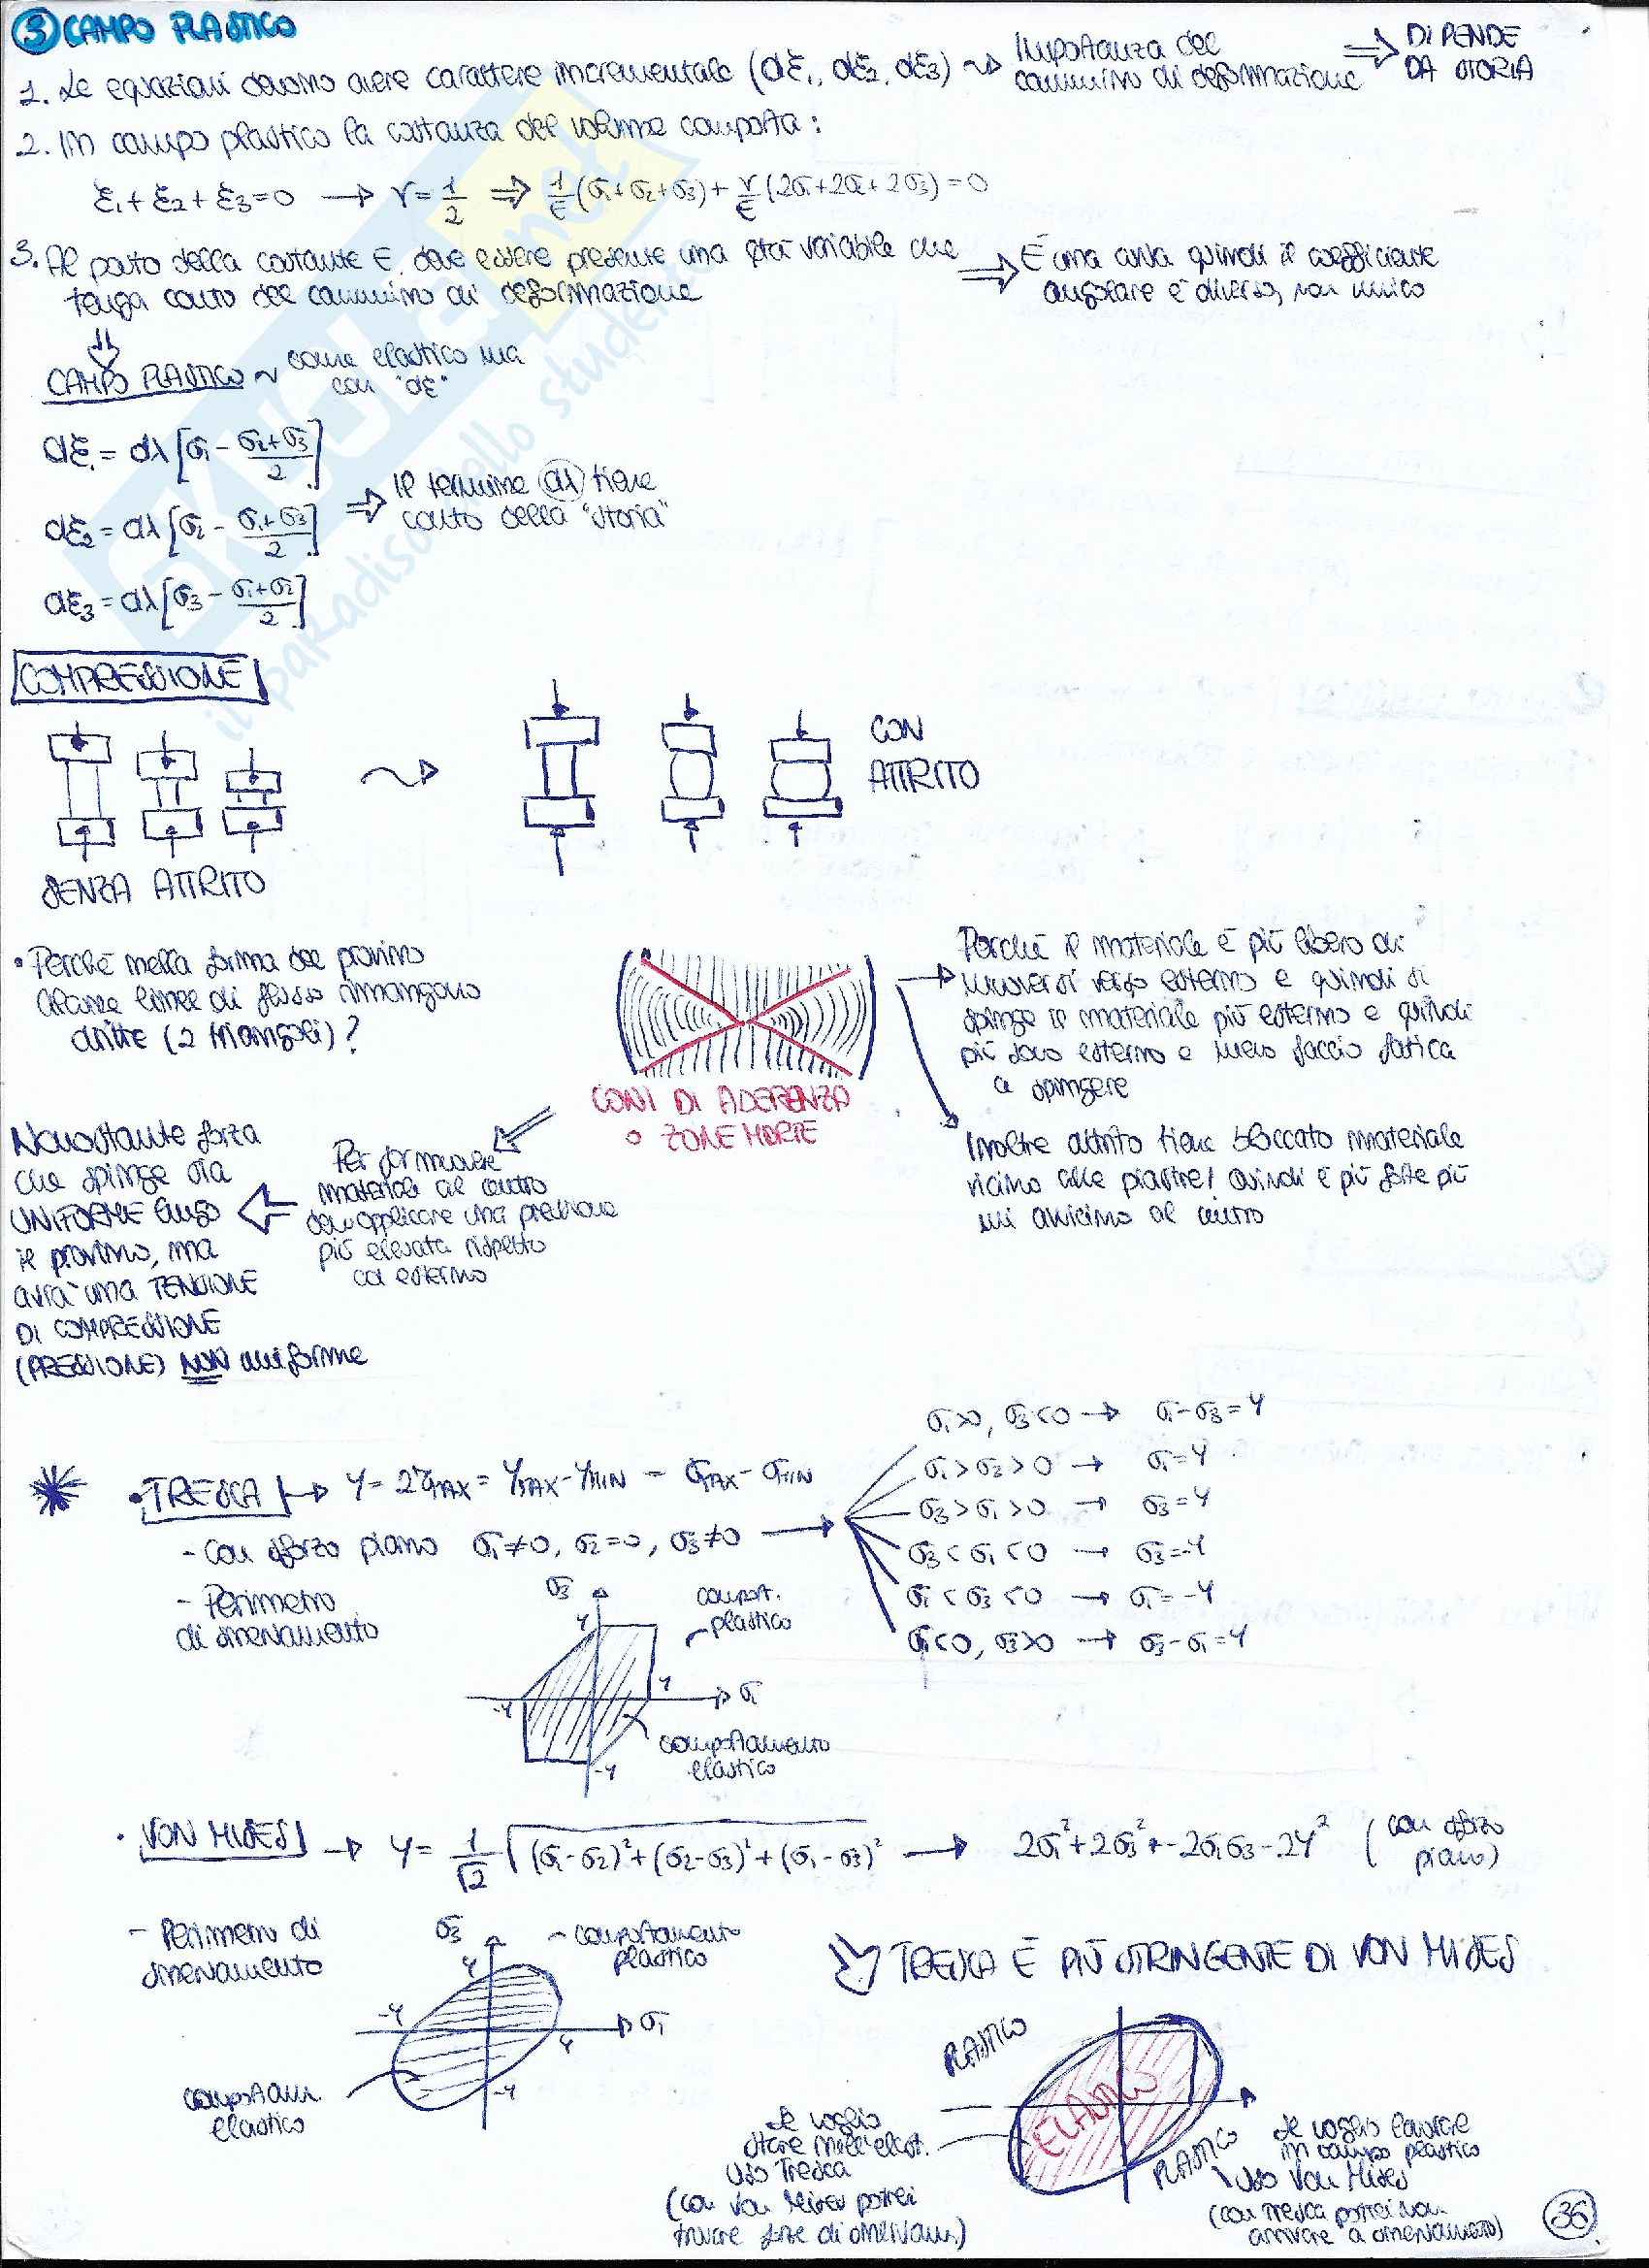 ③ CAMPO PLASTICO
1. Le equazioni devono avere carattere incrementale (dε1, dε2, dε3) ~> Importanza del cammino di deformazione => DIPENDE DA STORIA
2. In campo plastico la costanza del volume comporta:
ε1+ε2+ε3=0 → ν=1/2 => 1/E(σ1+σ2+σ3)+ν/E(2σ1+2σ2+2σ3)=0
3. Al posto della costante E, deve essere presente una qtà variabile che => È una curva quindi il coefficiente
tenga conto del cammino di deformazione
angolare è diverso, non unico
CAMPO PLASTICO ~ come elastico ma
con "dε"
dε1 = dλ[σ1 - (σ2+σ3)/2]
dε2 = dλ[σ2 - (σ1+σ3)/2] => Il termine dλ tiene
conto della "storia"
dε3 = dλ[σ3 - (σ1+σ2)/2]
COMPRESSIONE
CON
ATTRITO
SENZA ATTRITO
• Perché nella forma del provino
alcune linee di flusso rimangono
dritte (2 triangoli)?
CONI DI ADERENZA
o ZONE MORTE
Perché il materiale è più libero di
muoversi verso esterno e quindi si
spinge il materiale più esterno e quindi
più sono esterno e meno faccio fatica
a spingere
Inoltre attrito tiene bloccato materiale
vicino alle piastre! Quindi è più forte più
mi avvicino al centro
Per far muovere
materiale al centro
devo applicare una pressione
più elevata rispetto
ad esterno
Nonostante forza
che spinge sia
UNIFORME lungo
il provino, ma
avrà una TENSIONE
DI COMPRESSIONE
(PRESSIONE) NON uniforme
• TRESCA → Y = 2τMAX = YMAX-YMIN = σMAX-σMIN
- Con sforzo piano σ1≠0, σ2=0, σ3≠0
σ1>0, σ3<0 → σ1-σ3=Y
σ1>σ3>0 → σ1=Y
σ3>σ1>0 → σ3=Y
σ3<σ1<0 → σ3=-Y
σ1<σ3<0 → σ1=-Y
σ1<0, σ3>0 → σ3-σ1=Y
- Perimetro
di snervamento
σ3
Y
comport.
plastico
-Y
Y
σ1
-Y
comportamento
elastico
• VON MISES → Y = 1/√2 √((σ1-σ2)²+(σ2-σ3)²+(σ1-σ3)²) → 2σ1²+2σ3²+-2σ1σ3=2Y² (con sforzo
piano)
- Perimetro di
snervamento
σ3
Y
~ comportamento
plastico
-Y
Y
σ1
-Y
comportam.
elastico
TRESCA È PIÙ STRINGENTE DI VON MISES
PLASTICO
ELASTICO
PLASTICO
Se voglio
stare nell'elast.
uso Tresca
(con Von Mises potrei
trovare forze di snervam.)
Se voglio lavorare
in campo plastico
uso Von Mises
(con Tresca potrei non
arrivare a snervamento)
36
SKUOLA.net
il paradiso dello studente